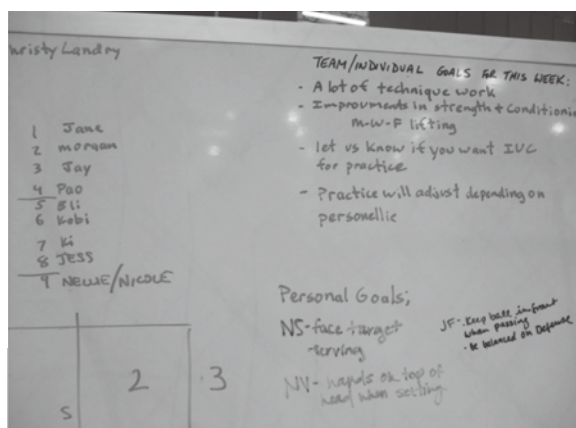 hristy Landry
1 Jane
2 morgan
3 Jay
4 Pao
5 Eli
6 Kobi
7 Ki
8 JESS
9 NELLIE/NICOLE
S
2
3
TEAM/INDIVIDUAL GOALS FOR THIS WEEK:
- A lot of technique work
- Improvments in strength + conditionin
M-W-F lifting
- let us know if you want
for practice
- Practice will adjust depending on
personellic
Personal Goals;
NS-face target
-serving
NV- hands on top of
head when setting
JF-. Keep ball infront
when passing
. Be balanced on Defense